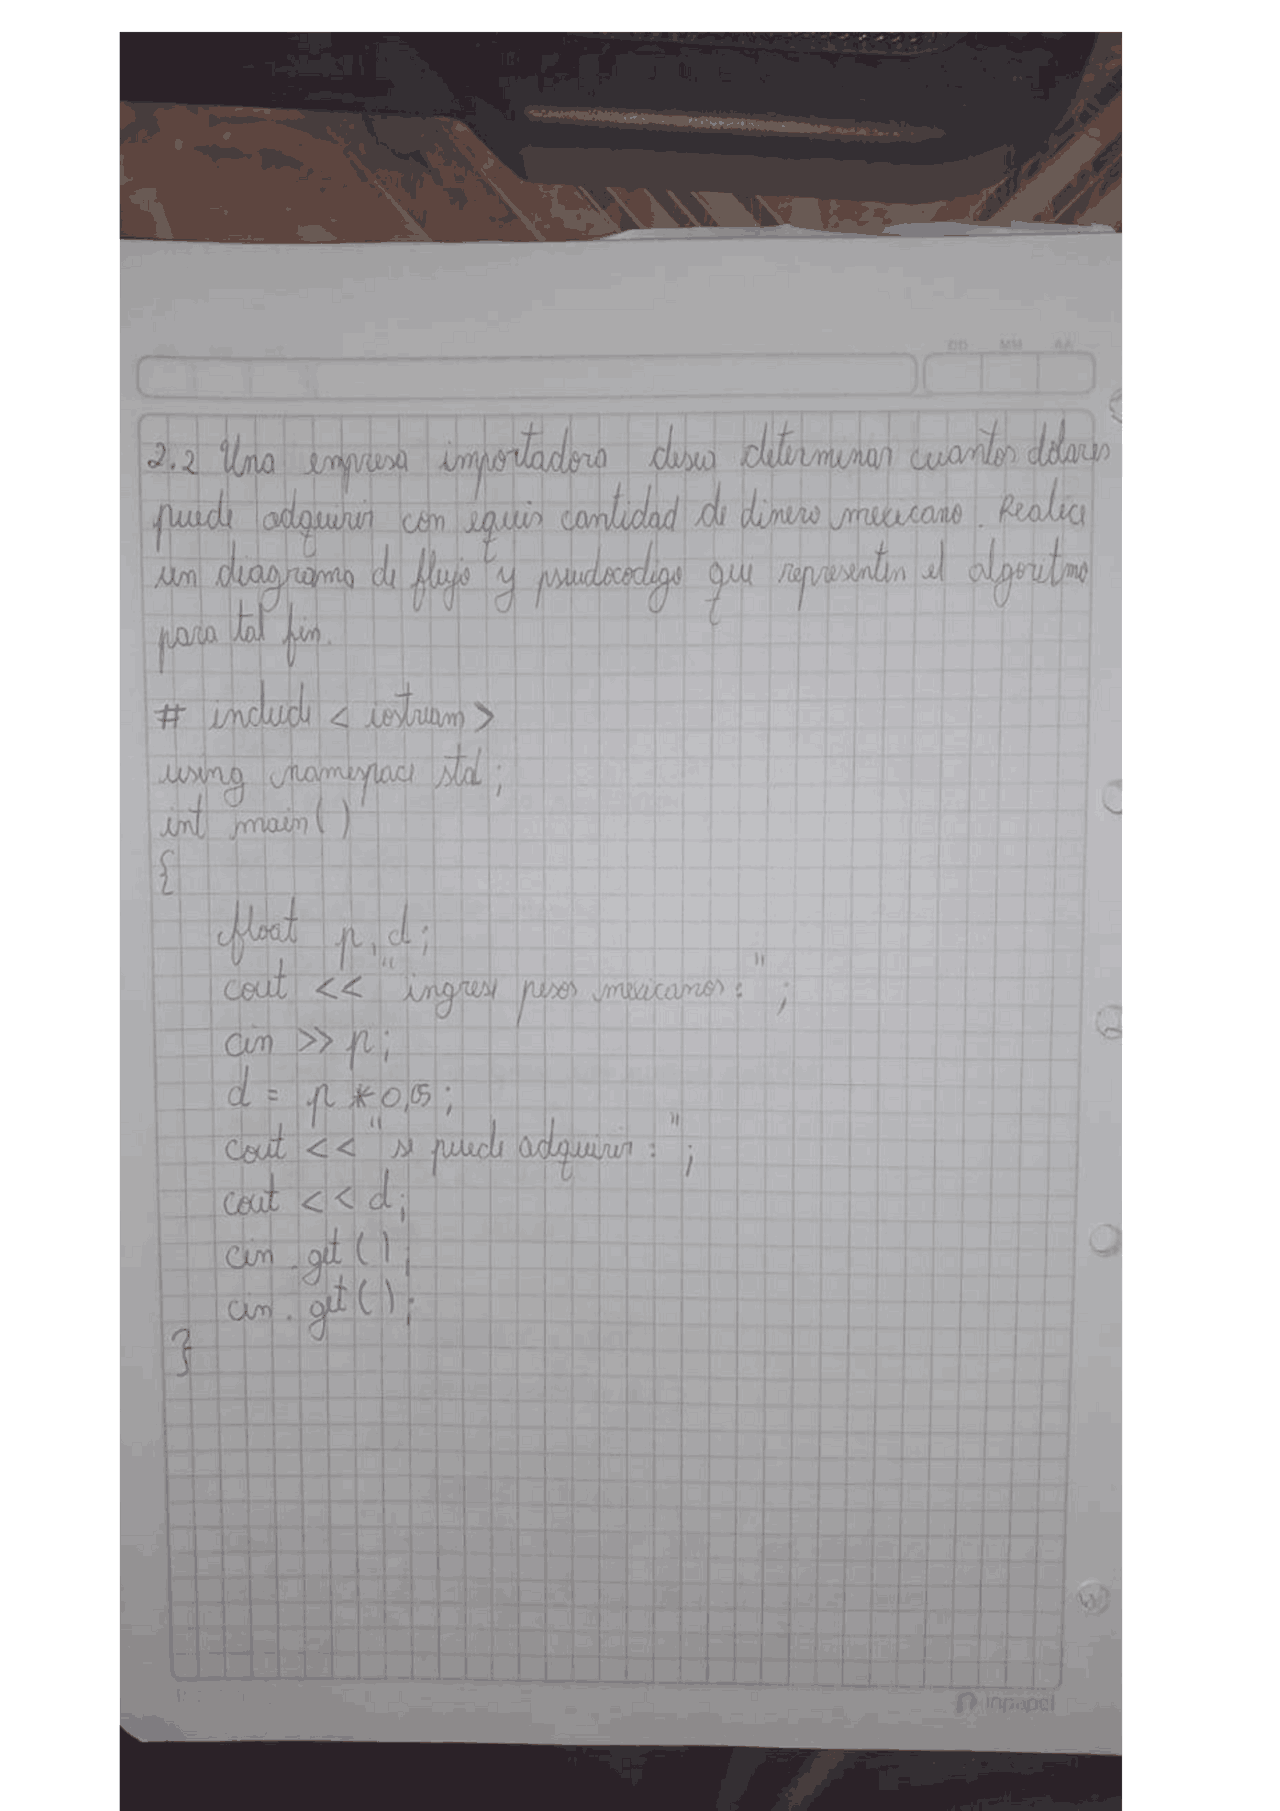 DD MM AA
2.2 Una empresa importadora desea determinar cuantos dólares
puede adquirir con equis cantidad de dinero mexicano. Realice
un diagrama de flujo y pseudocodigo que representen el algoritmo
para tal fin.
# include < iostream >
using namespace std;
int main()
{
float p, d;
cout << "ingrese pesos mexicanos: ";
cin >> p;
d = p * 0,05;
cout << "se puede adquirir: ";
cout << d;
cin . get();
cin . get();
}
inpapel